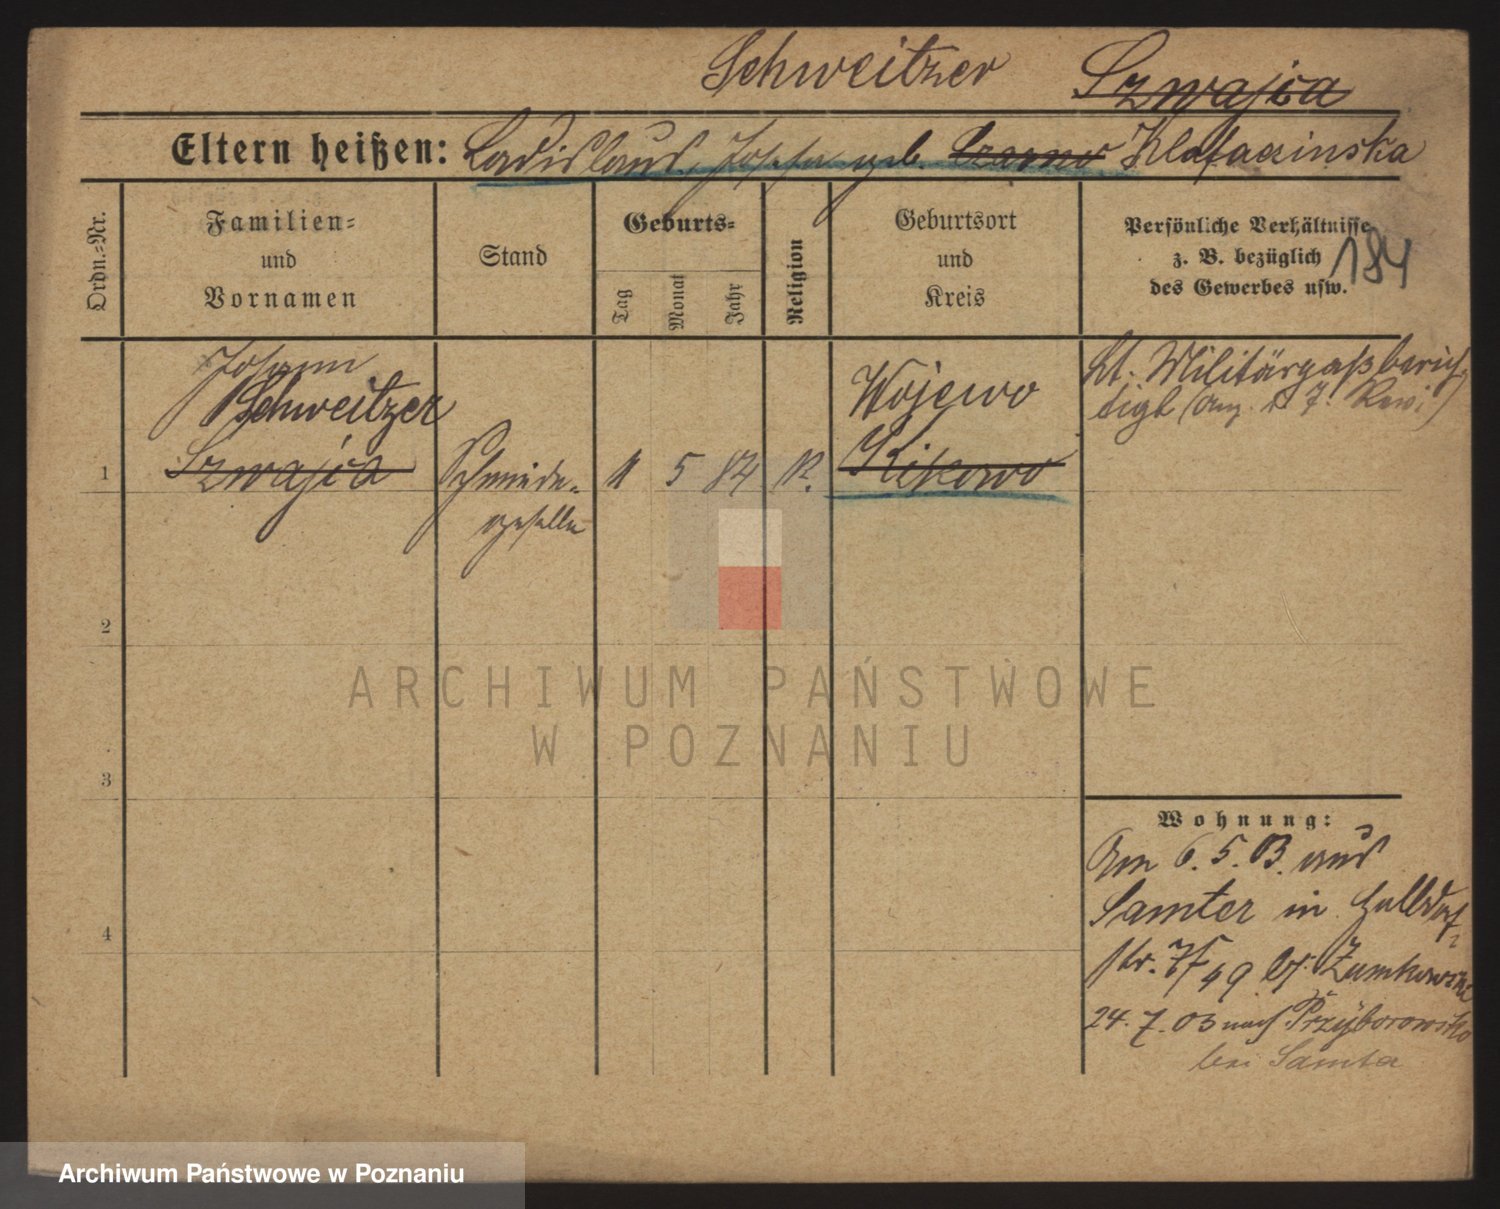 Schweitzer Szwajca
Eltern heißen: Ladislaus, Josefa geb. Czarno Klafaczinska
Ordn.=Nr.
Familien=
und
Vornamen
Stand
Geburts=
Tag
Monat
Jahr
Religion
Geburtsort
und
Kreis
Persönliche Verhältnisse
z. B. bezüglich
des Gewerbes usw.
184
Johann
Schweitzer
Szwajca
1
Schmiede-
geselle
5 84
Wojewo
Kikowo
Lt. Militärpaß berich-
tigt
2
3
4
Wohnung:
Am 6. 5. 03. aus
Samter in
str. 49 bei
24. 7. 03 nach Przyborowko
bei Samter
ARCHIWUM PAŃSTWOWE
W POZNANIU
Archiwum Państwowe w Poznaniu